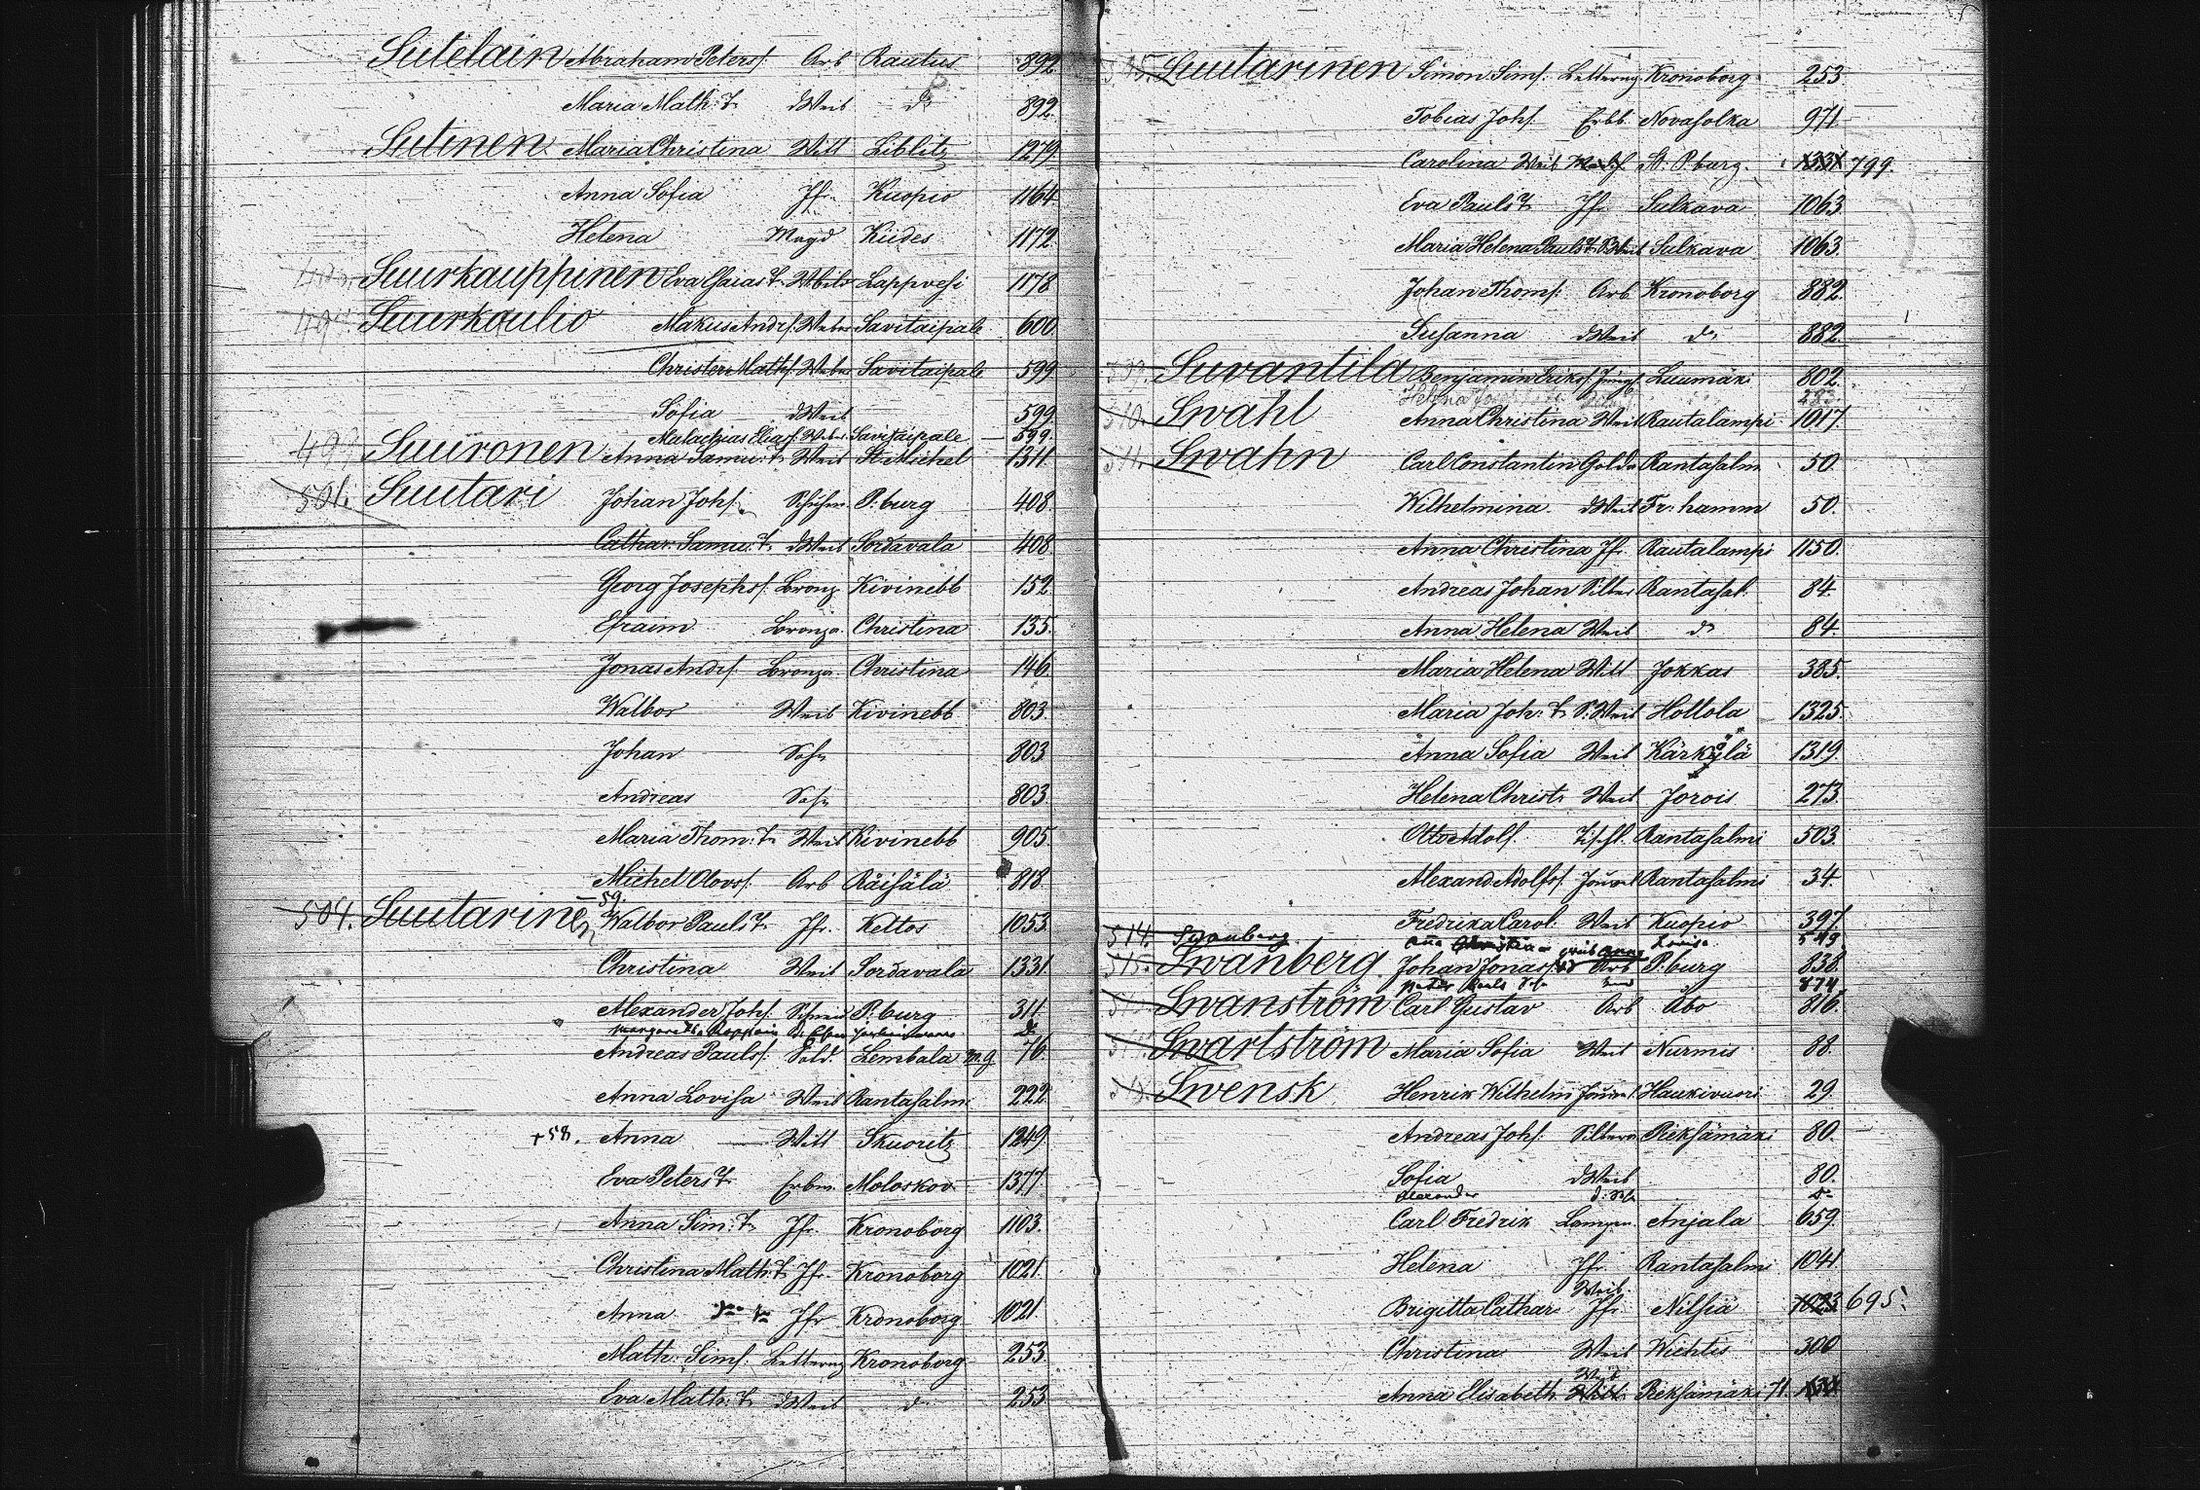 Sutelain Abraham Peters: Arb Rautus 892
Maria Math: T. dWeib d° 892.
Sutinen Maria Christina Witt Liblitz 1279.
Anna Sofia Jfr. Kuopio 1164.
Helena Magd Kides 1172.
Suurkauppinen Eva Esaias T. Lappvesi 1178
Suurkoulio Makus Andrs. Weber Savitaipale 600.
Christer Maths. Weber Savitaipale 599
Sofia dWeib 599.
Malachias Elias. Weber Savitaipale 599.
499. Suuronen Anna Samu: T. Weib St Michel 1311.
501. Suutari Johan Johs. Schuhm P:burg 408.
Cathar. Samu: T. dWeib Sordavala 408.
Georg Josephs: Bronz. Kivinebb 152.
Efraim Bronza. Christina 135.
Jonas Andrs. Bronza. Christina 146.
Walbor Weib Kivinebb 803.
Johan Sohn 803
Andreas Sohn 803
Maria Thom: T. Weib Kivinebb 905.
Michel Olovs: Arb Räisälä 818.
59.
504. Suutarinen Walbor Pauls T. Jfr. Keltos 1053.
Christina Weib Sordavala 1331.
Alexander Johs. Schneid P:burg 311.
Andreas Pauls: Sold. Lembala 76.
Anna Lovisa Weib Rantasalm. 222.
+58. Anna Witt Skuoritz 1249.
Eva Peters T. Erbm. Moloskov. 1377.
Anna Sim: T. Jfr. Kronoborg 1103.
Christina Math: T. Jfr. Kronoborg 1021.
Anna Jfr Kronoborg 1021.
Math: Sims. Kronoborg 253.
Eva Math: T. dWeib d° 253.
Suutarinen Simon Sims: Kronoborg 253
Tobias Johs. Erbb. Novasolka 971.
Carolina Weib St. P:burg. 799.
Eva Pauls T. Jfr Sulkava 1063.
Maria Helena Pauls T. Sulkava 1063.
Johan Thoms: Arb Kronoborg 882.
Susanna dWeib d° 882.
Suvantila Benjamin Eriks. Luumäki 802.
510. Swahl Anna Christina Weib Rautalampi 1017.
511. Swahn Carl Constantin Golda Rantasalm 50.
Wilhelmina dWeib Fr: hamm 50.
Anna Christina Jfr. Rautalampi 1150.
Andreas Johan Silber Rantasal. 84.
Anna Helena Weib d° 84.
Maria Helena Witt Jokkas 385.
Maria Joh: T. S: Weib Hollola 1325.
Anna Sofia Weib Kärkölä 1319.
Helena Christ: Weib Jorois 273.
Otto Adolf. Tischl. Rantasalmi 503.
Alexand Adolfs. Rantasalmi 34.
Fredrika Carol. Weib Kuopio 397
514. Swanberg Lovisa 549
515. Swanberg Johan Jonas: Arb P:burg 838.
Peter Pauls Sohn 874.
Swanström Carl Gustav Arb Åbo 816.
Swartström Maria Sofia Weib Nurmis 88.
Swensk Henrik Wilhelm Haukivuori 29.
Andreas Johs: Silbera Pieksämäki 80.
Sofia dWeib 80.
Alexander d: Sohn d°
Carl Fredrik Lampen. Anjala 659.
Helena Jfr. Rantasalmi 1041.
Weib.
Brigitta Cathar: Jfr. Nilsiä 1023 695.
Christina Weib Wichtis 300
Weib
Anna Elisabeth Witt Pieksämäki 71.